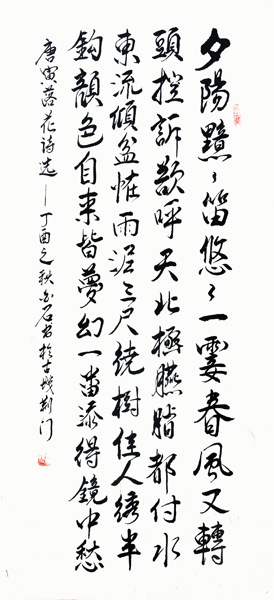 夕陽黯〻笛悠〻一霎春風又轉
頭控訴欲呼天北極臙脂都付水
東流傾盆恠雨泥三尺繞樹佳人綉半
鈎顏色自来皆夢幻一番添得鏡中愁
唐寅落花詩选—丁酉之秋石书於古城荆门